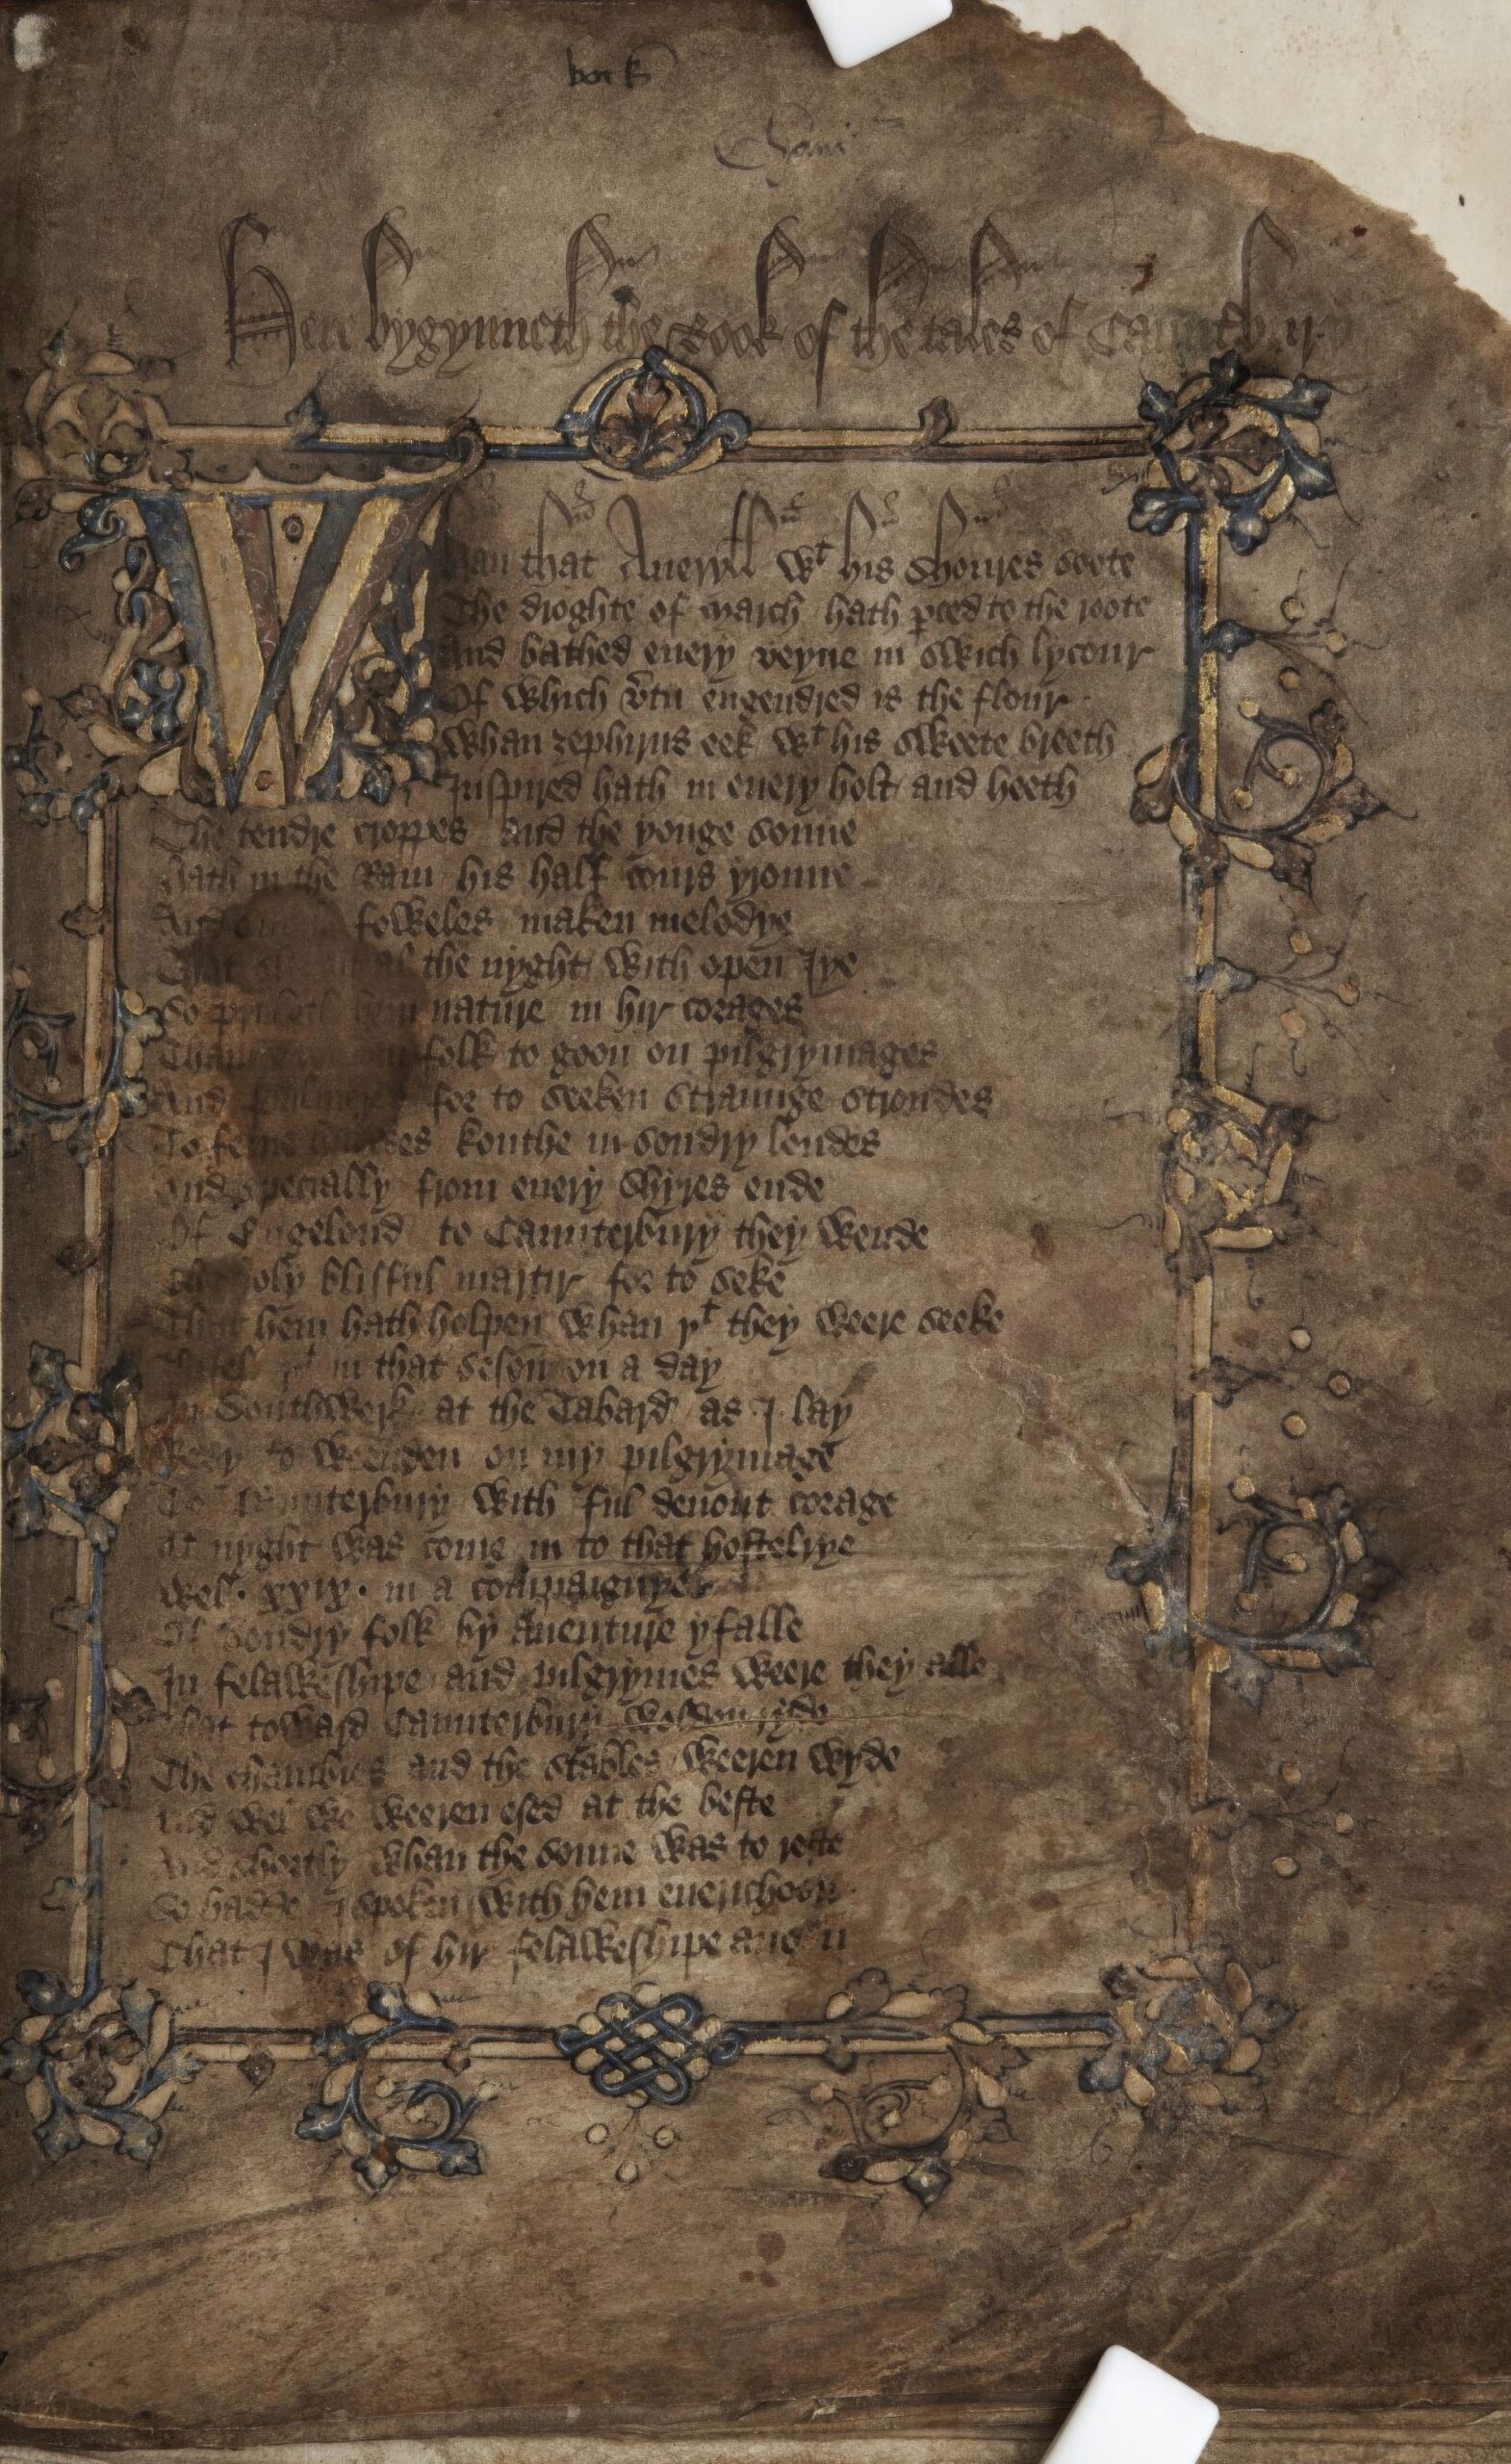 Here bygynneth the Book of the tales of Caunt
Whan that Aueryll wt his shoures soote
The droghte of march hath pced to the roote
And bathed euery veyne in swich lycour
Of which vtu engendred is the flour
Whan zephirus eek wt his sweete breeth
Inspired hath in euery holt and heeth
The tendre croppes and the yonge sonne
Hath in the Ram his half cours yronne
And foweles maken melodye
al the nyght with open Iye
So hem nature in hir corages
folk to goon on pilgrymages
And for to seeken straunge strondes
To kouthe in sondry londes
And specially from euery shyres ende
Of Engelond to Caunterbury they wende
The holy blisful martir for to seke
That hem hath holpen whan yt they weere seeke
yt in that seson on a day
In Southwerk at the Tabard as I lay
Redy to weenden on my pilgrymage
To Caunterbury with ful deuout corage
At nyght was come in to that hostelrye
Wel · xxix · in a compaignye
Of sondry folk by auenture yfalle
In felaweshipe and pilgrymes weere they alle
That toward Caunterbury wolden ryde
The chambres and the stables weeren wyde
And wel we weeren esed at the beste
And shortly whan the sonne was to reste
So hadde I spoken with hem euerichoon
That I was of hir felaweshipe anoon